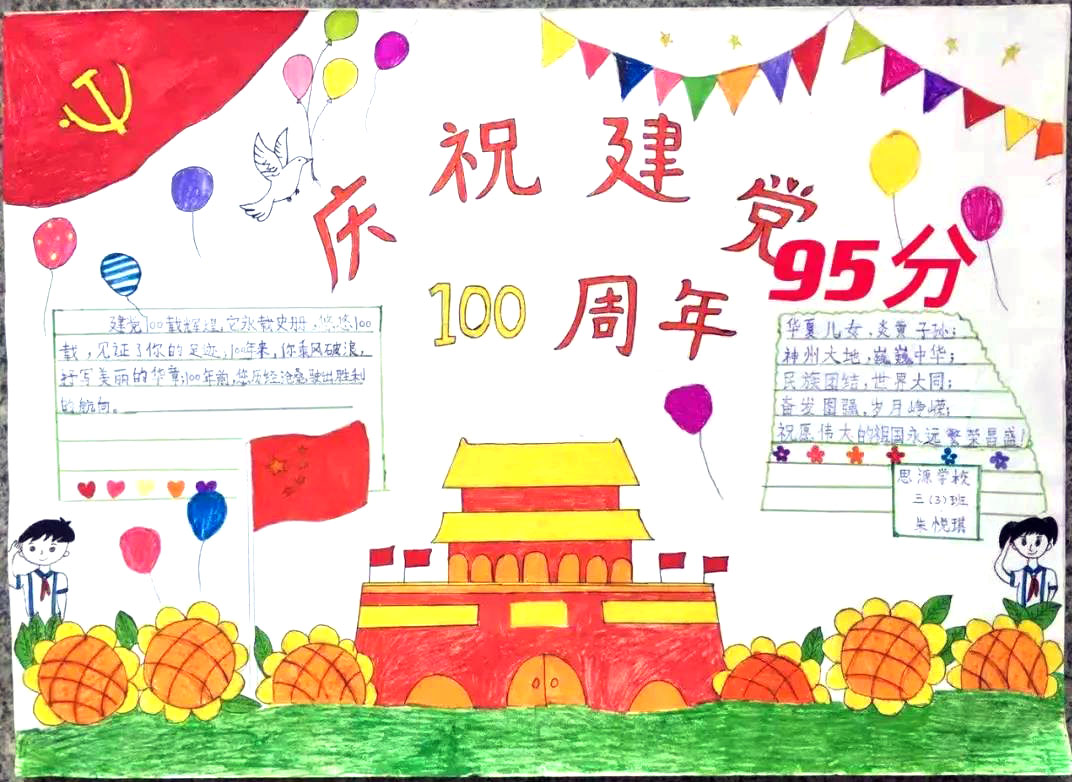 庆祝建党
95分
100周年
建党100载辉煌,它永载史册,悠悠100
载,见证了你的足迹,100年来,你乘风破浪,
抒写美丽的华章;100年前,您历经沧桑,驶出胜利
的航向。
华夏儿女,炎黄子孙;
神州大地,巍巍中华;
民族团结,世界大同;
奋发图强,岁月峥嵘;
祝愿伟大的祖国永远繁荣昌盛!
思源学校
三(3)班
朱悦琪